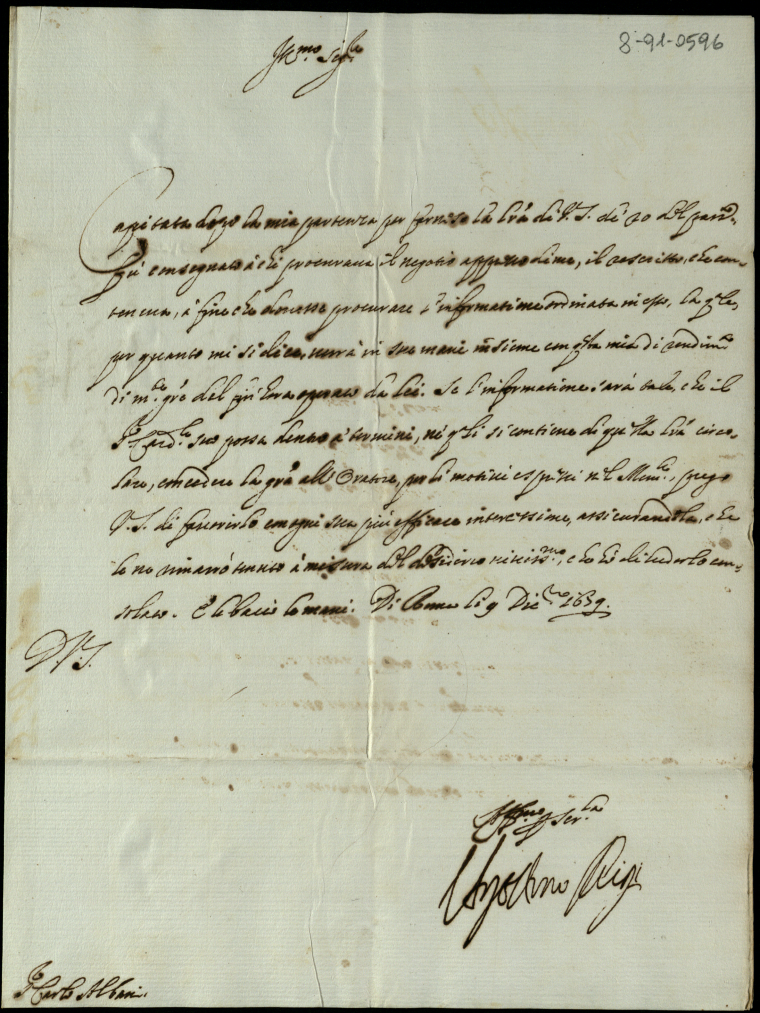 8-91-0596
Ill.mo Sig.re
Capitata dopo la mia partenza per la lrã di V.S. de 20 del pass.to
fù consegnata à chi procuraua il negotio appresso di me, il rescritto, che con=
teneua, à fine che douesse procurare l'informatione ordinata in esso, la q.le,
per quanto mi si dice, uerrà in sue mani insieme con q.ta mia di rendim.to
di m.te grẽ del fin hora operato da lei. Se l'informatione sarà tale, che il
S.r Card.le suo possa dentro à termini, ne q.li si contiene di quella lrã circo=
lare, concedere la grã all'Oratore, per li motiui espressi nel Mem.le, prego
V.S. di fauorirlo con ogni sua più efficace intercessione, assicurandola, che
le ne rimarrò tenuto à misura del desiderio uiuiss.mo, che hò di uederlo con=
solato. E le bacio le mani. Di Roma li 9 Dic.bre 1659.
D.V.S.
Aff.mo Ser.re
S.r Carlo Albani.